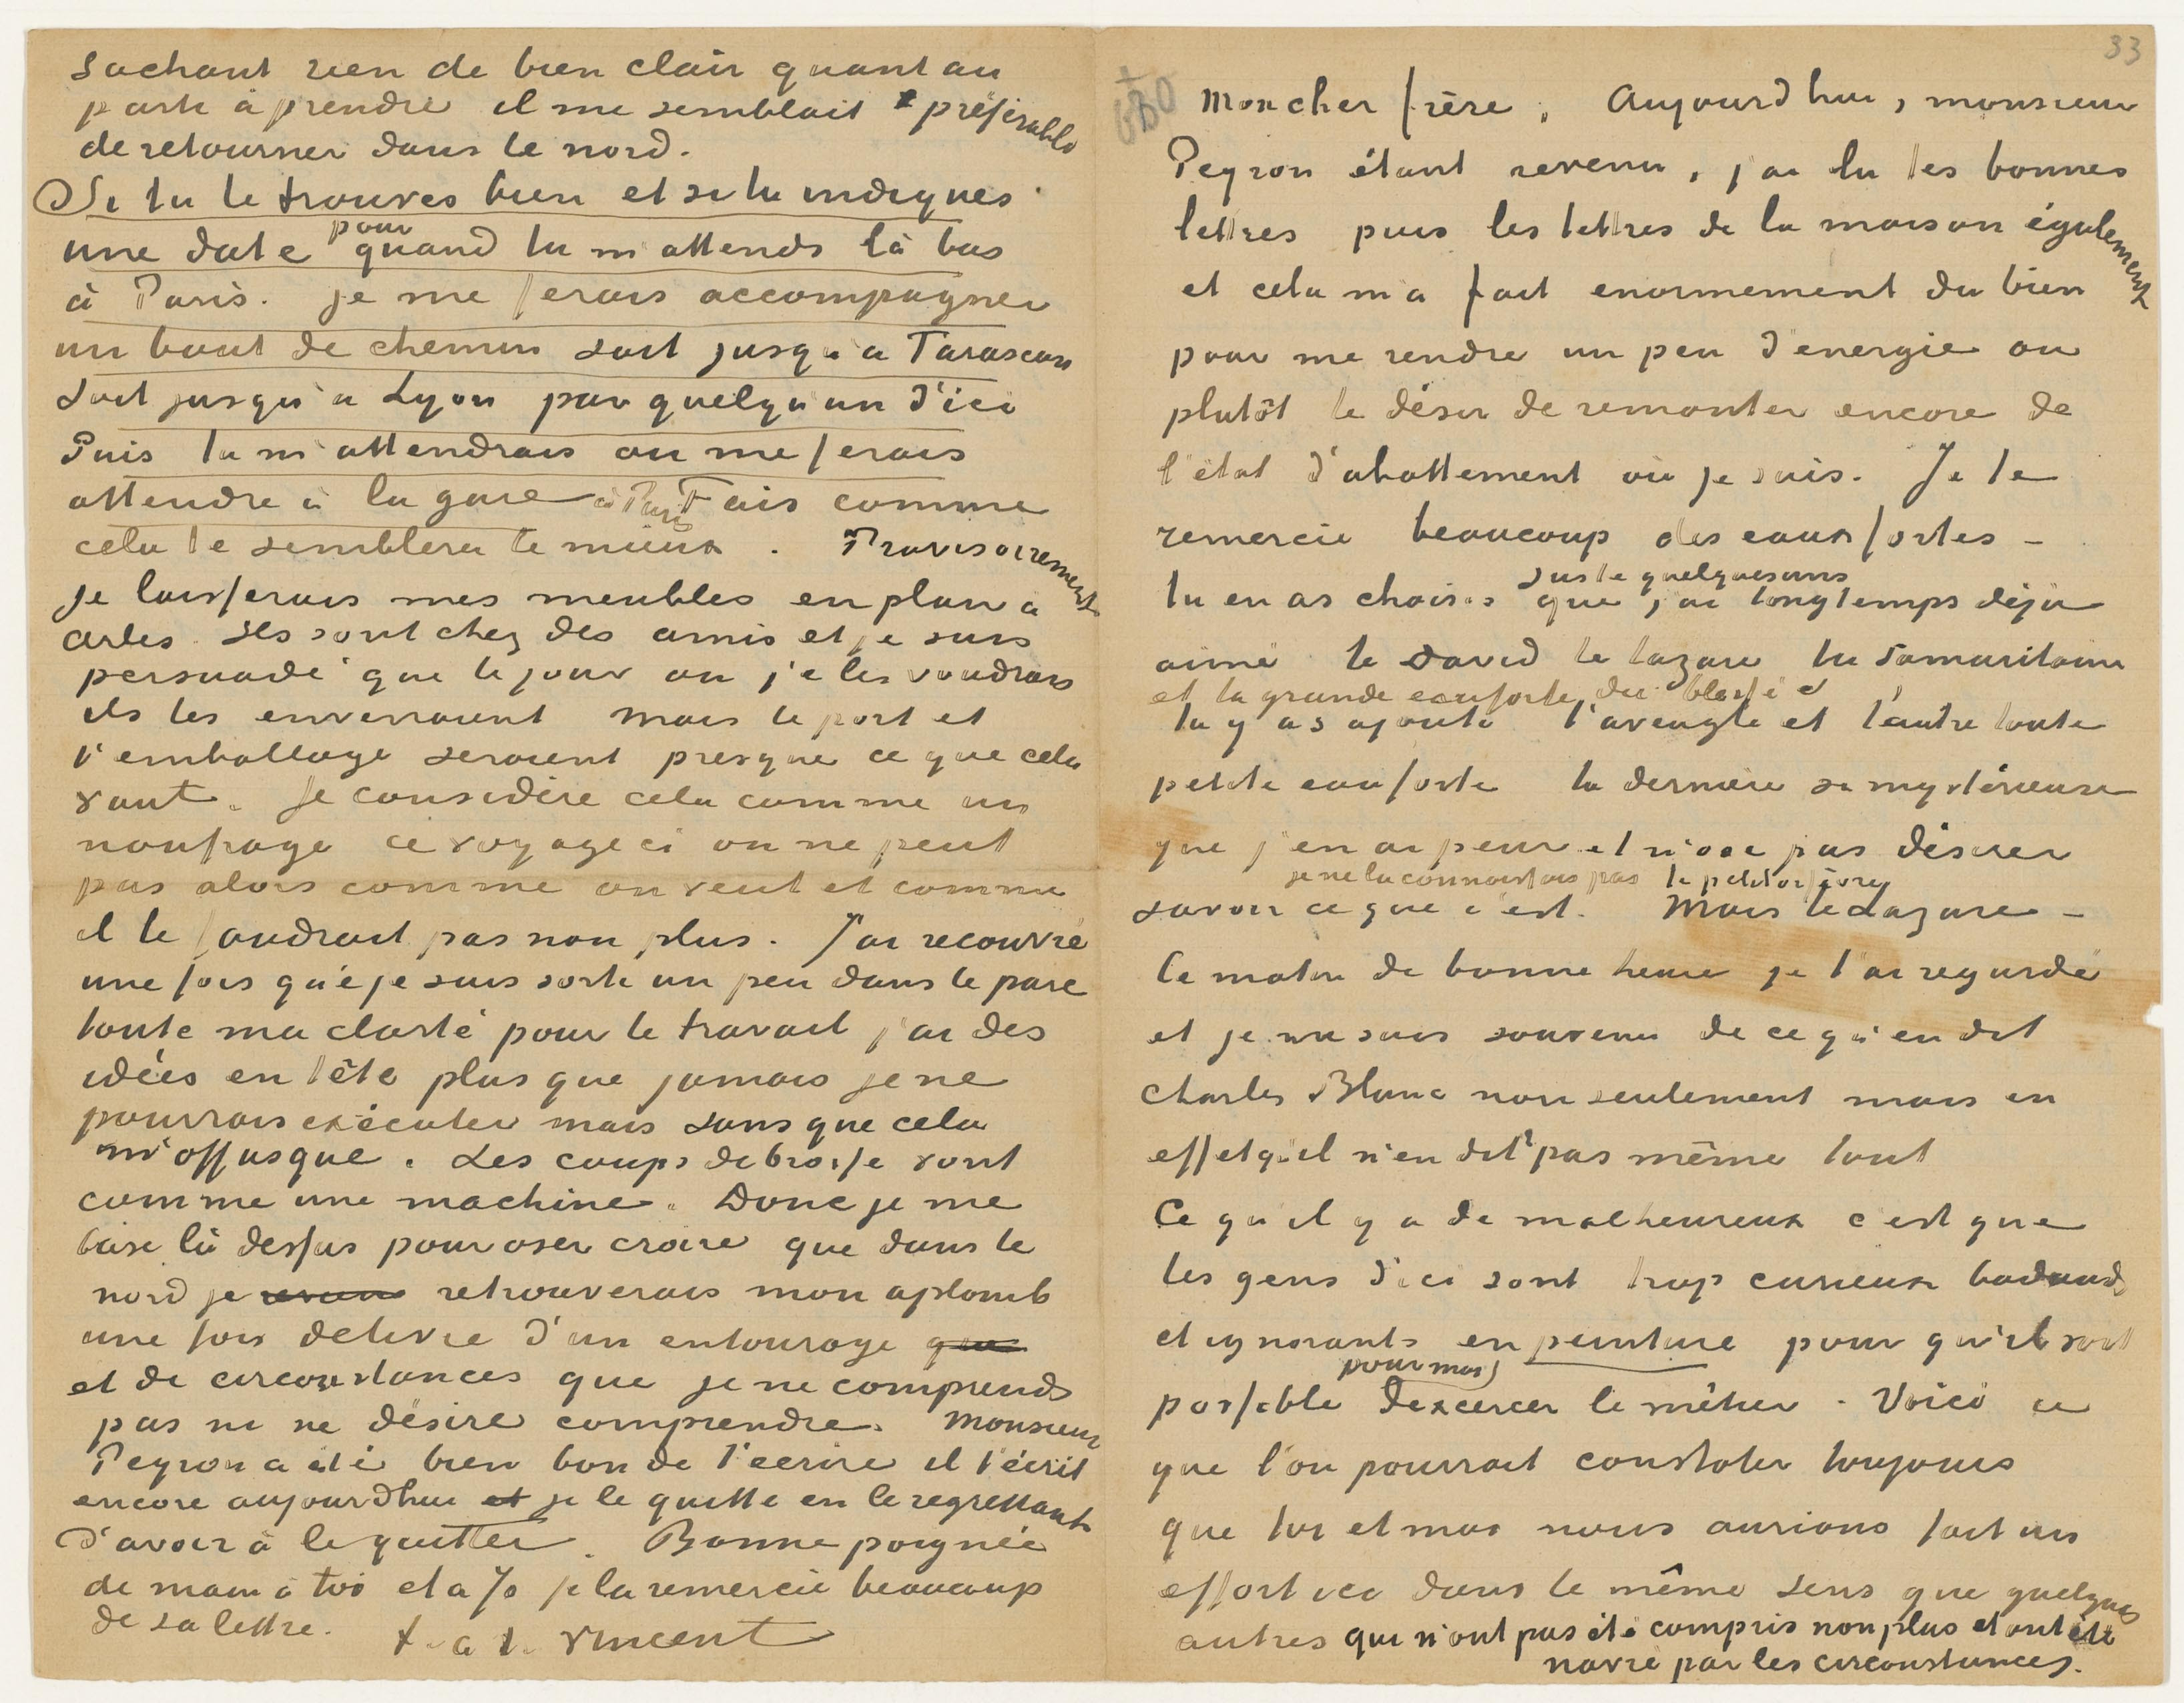 sachant rien de bien clair quant au
parti à prendre il me semblait préférable
de retourner dans le nord.
Si tu le trouves bien et si tu indiques
pour
une date quand tu m'attends là bas
à Paris. je me ferais accompagner
un bout de chemin soit jusqu'a Tarascon
soit jusqu'a Lyon par quelqu'un d'ici
Puis tu m'attendrais ou me ferais
attendre à la gare à Paris Fais comme
cela te semblera le mieux. Provisoirement
je laisserais mes meubles en plan a
Arles. Ils sont chez des amis et je suis
persuadé que le jour ou je les voudrais
ils les enverraient mais le port et
l'emballage seraient presque ce que cela
vaut. Je considère cela comme un
naufrage ce voyage ci on ne peut
pas alors comme on veut et comme
il le faudrait pas non plus. J'ai recouvré
une fois que je suis sorti un peu dans le parc
toute ma clarté pour le travail j'ai des
idées en tête plus que jamais je ne
pourrais exécuter mais sans que cela
m'offusque. Les coups de brosse vont
comme une machine. Donc je me
base là dessus pour oser croire que dans le
nord je retrouverais mon aplomb
une fois delivré d'un entourage que
et de circonstances que je ne comprends
pas ni ne désire comprendre. Monsieur
Peyron a été bien bon de t'ecrire il t'écrit
encore aujourdhui et je le quitte en le regrettant
d'avoir à le quitter. Bonne poignée
de main à toi et a Jo je la remercie beaucoup
de sa lettre. t. a t. Vincent
33
Mon cher frère, Aujourdhui, monsieur
Peyron étant revenu, j'ai lu tes bonnes
lettres puis les lettres de la maison également
et cela m'a fait enormement du bien
pour me rendre un peu d'energie ou
plutôt le désir de remonter encore de
l'état d'abattement où je suis. Je te
remercie beaucoup des eaux fortes –
juste quelquesuns
tu en as choisis que j'ai longtemps déja
aimé le David le Lazare la Samaritaine
et la grande eauforte du blessé
tu y as ajouté l'aveugle et l'autre toute
petite eauforte la dernière si mysterieuse
que j'en ai peur et n'ose pas désirer
je ne la connaissais pas le petit orfèvre
savoir ce que c'est. Mais le Lazare –
Ce matin de bonne heure je l'ai regardé
et je me suis souvenu de ce qu'en dit
Charles Blanc non seulement mais en
effet qu'il n'en dit pas même tout
Ce qu'il y a de malheureux c'est que
les gens d'ici sont trop curieux badauds
et ignorants en peinture pour qu'il soit
pour moi
possible d'exercer le métier. Voici ce
que l'on pourrait constater toujours
que toi et moi nous aurions fait un
effort ici dans le même sens que quelques
autres qui n'ont pas été compris non plus et ont été
navré par les circonstances.